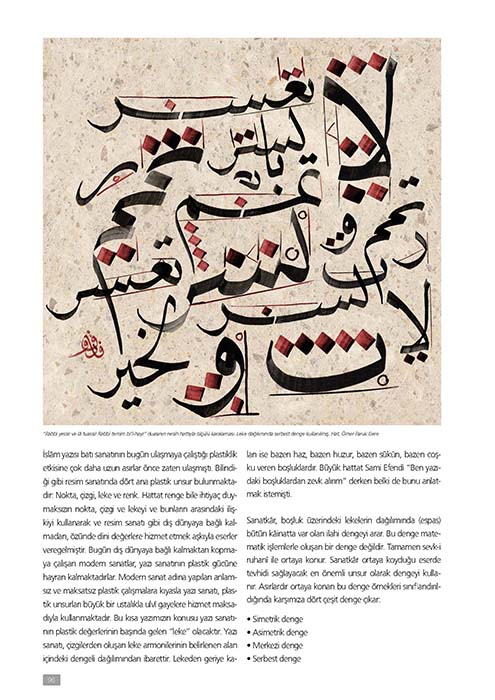 تعسر لا
"Rabbi yessir ve lâ tuassir Rabbi temim bi'l-hayr" duasının nesih hattıyla ölçülü karalaması. Leke dağılımında serbest denge kullanılmış. Hat, Ömer Faruk Dere
İslâm yazısı batı sanatının bugün ulaşmaya çalıştığı plastiklik
etkisine çok daha uzun asırlar önce zaten ulaşmıştı. Bilindi-
ği gibi resim sanatında dört ana plastik unsur bulunmakta-
dır: Nokta, çizgi, leke ve renk. Hattat renge bile ihtiyaç duy-
maksızın nokta, çizgi ve lekeyi ve bunların arasındaki iliş-
kiyi kullanarak ve resim sanatı gibi dış dünyaya bağlı kal-
madan, özünde dini değerlere hizmet etmek aşkıyla eserler
veregelmiştir. Bugün dış dünyaya bağlı kalmaktan kopma-
ya çalışan modern sanatlar, yazı sanatının plastik gücüne
hayran kalmaktadırlar. Modern sanat adına yapılan anlam-
sız ve maksatsız plastik çalışmalara kıyasla yazı sanatı, plas-
tik unsurları büyük bir ustalıkla ulvî gayelere hizmet maksa-
dıyla kullanmaktadır. Bu kısa yazımızın konusu yazı sanatı-
nın plastik değerlerinin başında gelen "leke" olacaktır. Yazı
sanatı, çizgilerden oluşan leke armonilerinin belirlenen alan
içindeki dengeli dağılımından ibarettir. Lekeden geriye ka-
lan ise bazen haz, bazen huzur, bazen sükûn, bazen coş-
ku veren boşluklardır. Büyük hattat Sami Efendi "Ben yazı-
daki boşluklardan zevk alırım" derken belki de bunu anlat-
mak istemişti.
Sanatkâr, boşluk üzerindeki lekelerin dağılımında (espas)
bütün kâinatta var olan ilahi dengeyi arar. Bu denge mate-
matik işlemlerle oluşan bir denge değildir. Tamamen sevk-i
ruhanî ile ortaya konur. Sanatkâr ortaya koyduğu eserde
tevhidi sağlayacak en önemli unsur olarak dengeyi kulla-
nır. Asırlardır ortaya konan bu denge örnekleri sınıflandırıl-
dığında karşımıza dört çeşit denge çıkar:
• Simetrik denge
• Asimetrik denge
• Merkezi denge
• Serbest denge
96